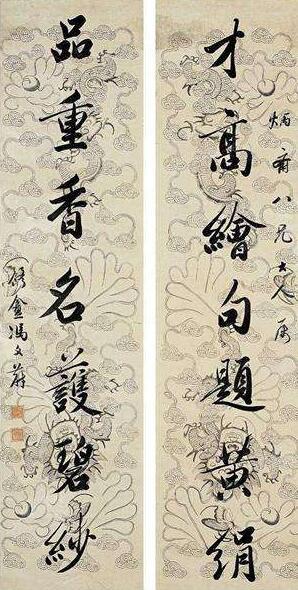 才高繪句題黃絹
八兄大人屬
品重香名護碧紗
修盦馮文蔚